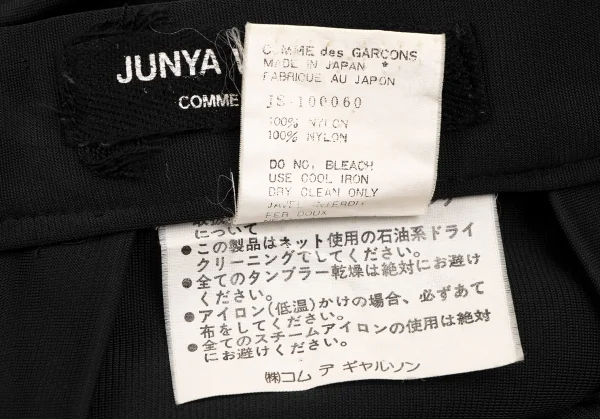 JUNYA
COMME
COMME des GARÇONS
MADE IN JAPAN *
FABRIQUE AU JAPON
JS-100060
100% NYLON
100% NYLON
DO NO. BLEACH
USE COOL IRON
DRY CLEAN ONLY
JAVEL INTERDIT
FER DOUX
について
●この製品はネット使用の石油系ドライ
クリーニングでしてください。
●全てのタンブラー乾燥は絶対にお避け
ください。
●アイロン(低温)かけの場合、必ずあて
布をしてください。
●全てのスチームアイロンの使用は絶対
にお避けください。
㈱コム デ ギャルソン